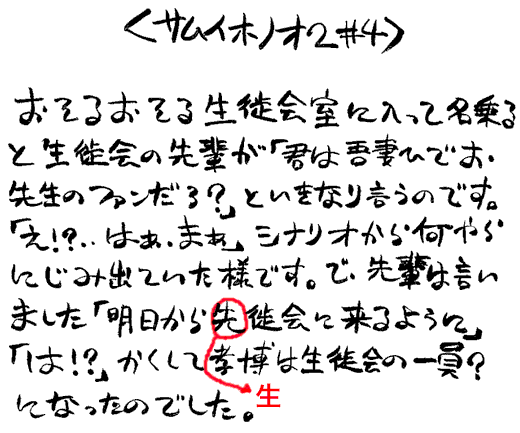 〈サムイホノオ2#4〉
おそるおそる生徒会室に入って名乗る
と生徒会の先輩が「君は吾妻ひでお・
先生のファンだろ?」といきなり言うのです。
「え!?‥はぁ、まぁ」シナリオから何やら
にじみ出ていた様です。で、先輩は言い
ました「明日から先徒会に来るように」
「は!?」かくして孝博は生徒会の一員?
になったのでした。
生